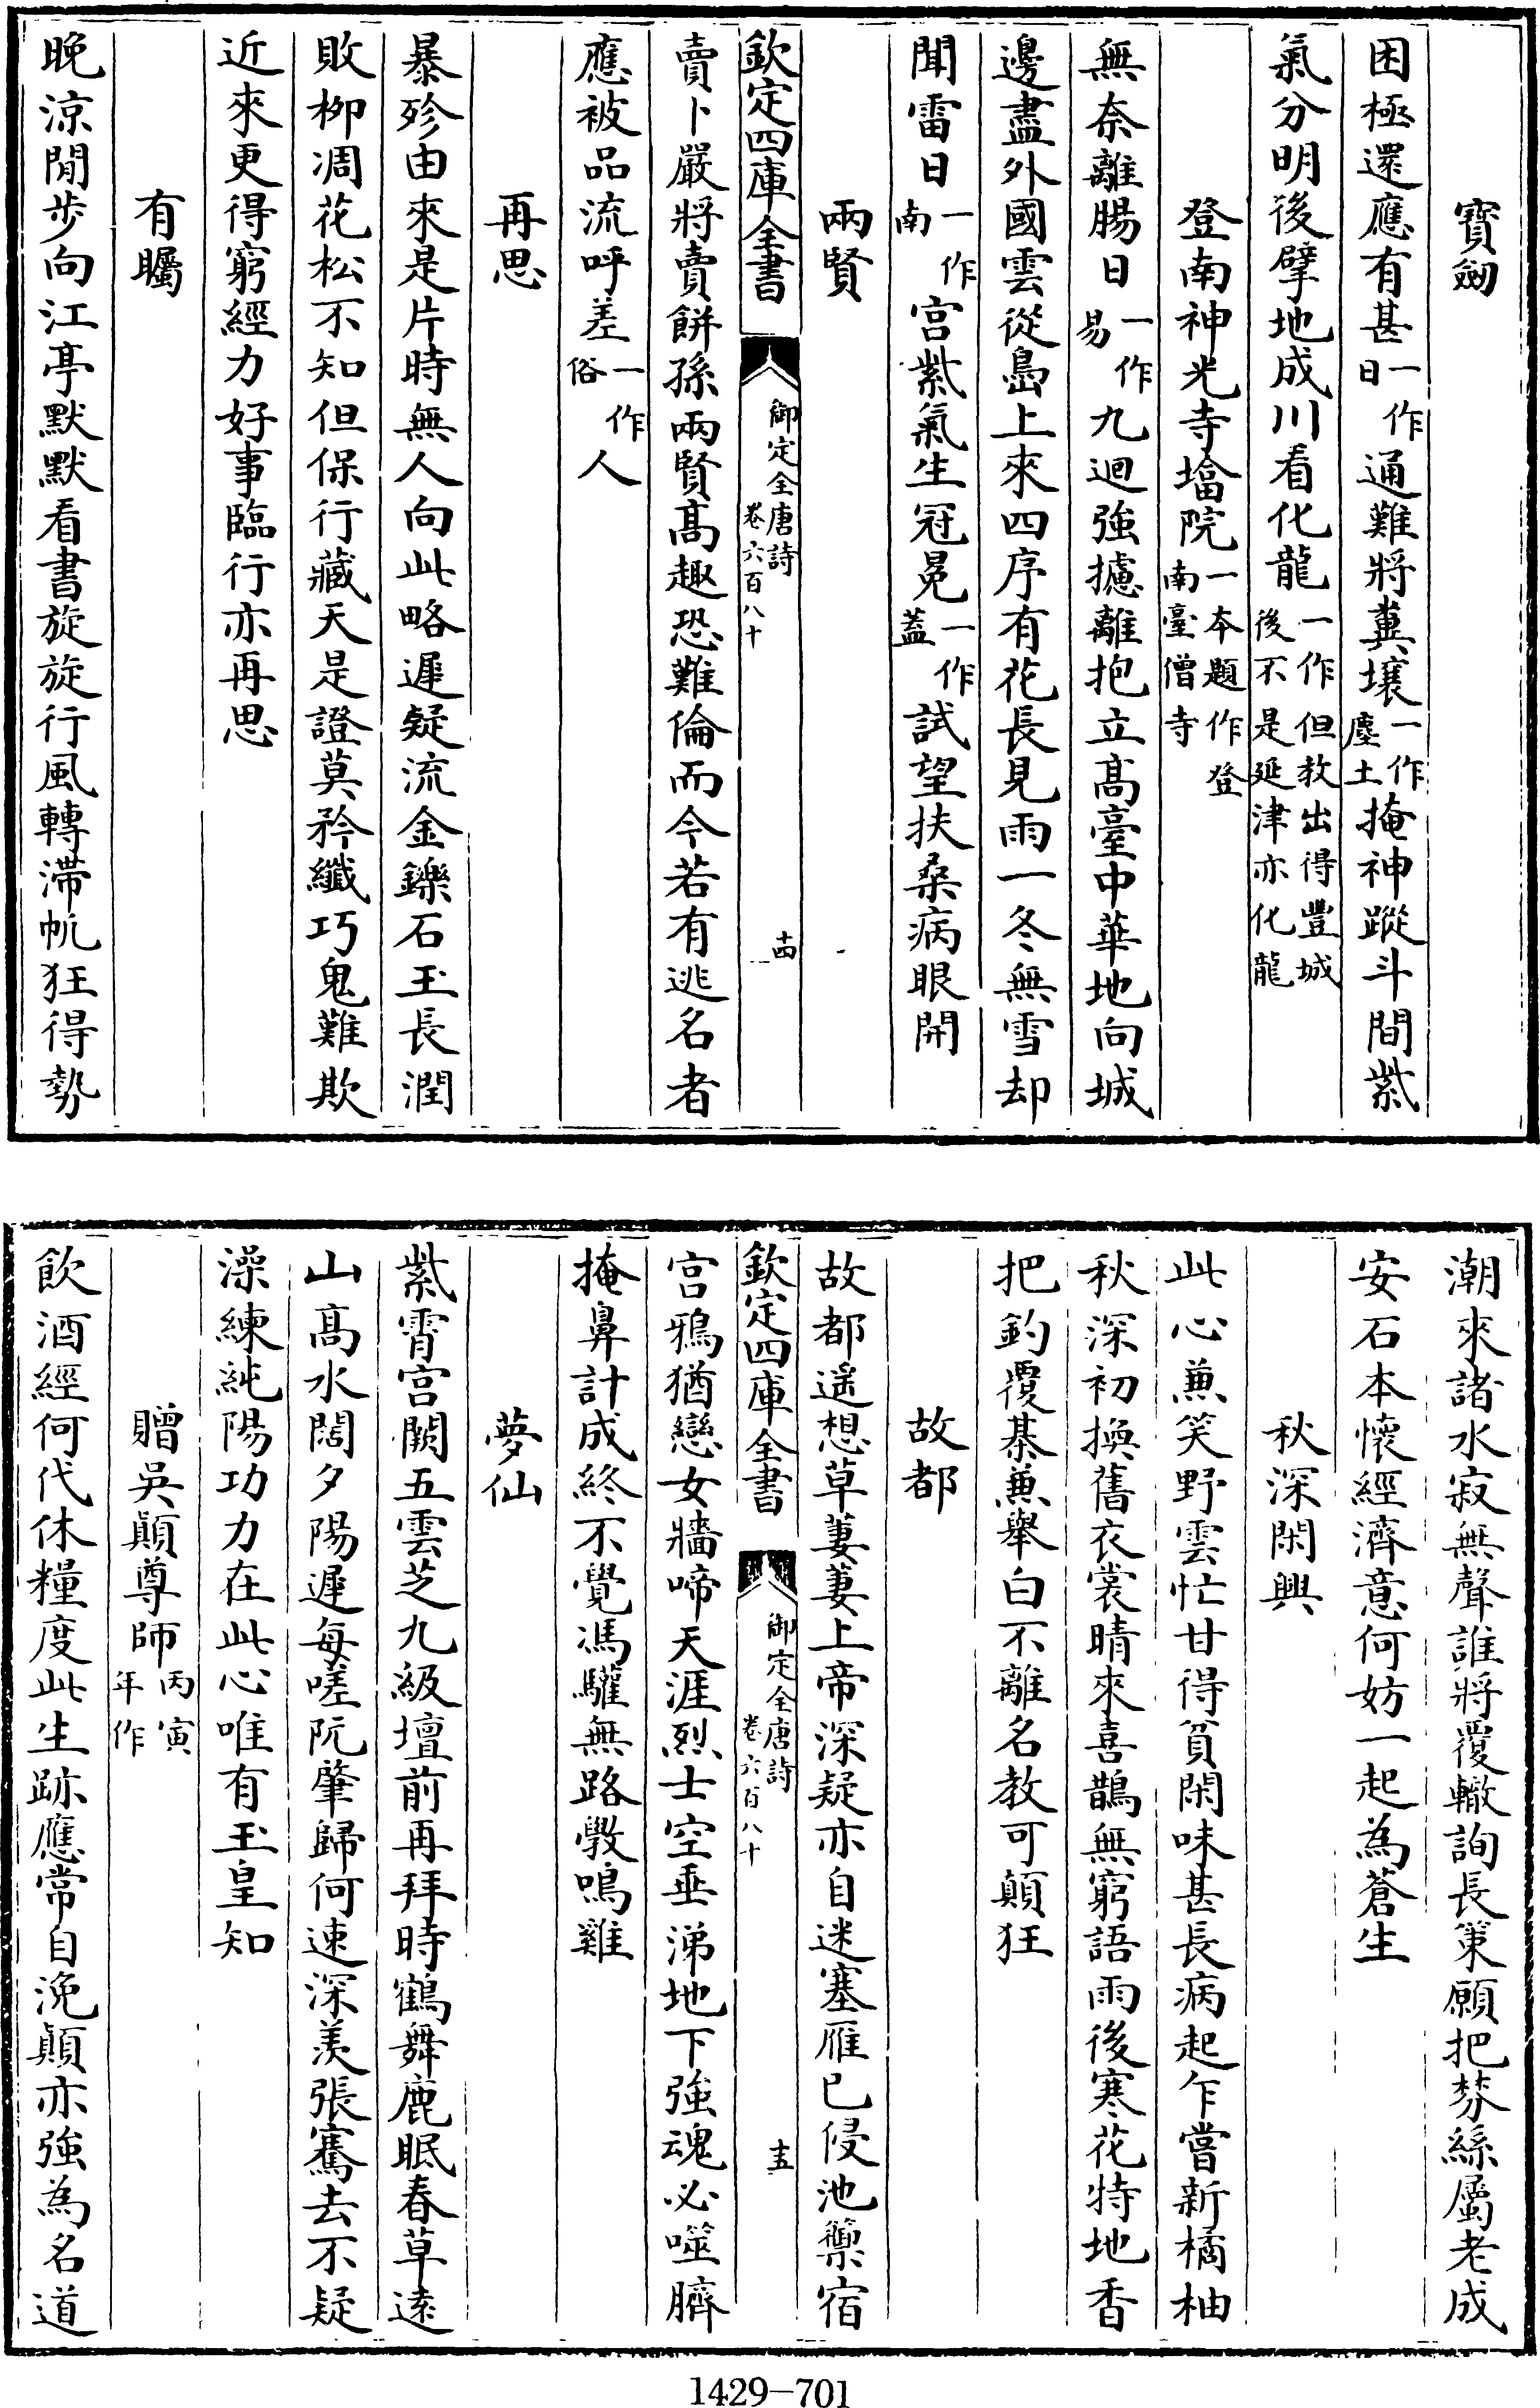 寶劒
困極還應有甚一作日通難將糞壤一作塵土掩神蹤斗間紫
氣分明後擘地成川看化龍一作但教出得豐城後不是延津亦化龍
登南神光寺㙮院一本題作登南臺僧寺
無奈離腸日一作易九迴強攄離抱立髙臺中華地向城
邊盡外國雲從島上來四序有花長見雨一冬無雪却
聞雷日一作南宫紫氣生冠冕一作蓋試望扶桑病眼開
兩賢
欽定四庫全書 御定全唐詩 卷六百八十 十四
賣卜嚴將賣餅孫兩賢髙趣恐難倫而今若有逃名者
應被品流呼差一作俗人
再思
暴殄由來是片時無人向此略遲疑流金鑠石玉長潤
敗柳凋花松不知但保行藏天是證莫矜纖巧鬼難欺
近來更得窮經力好事臨行亦再思
有矚
晚涼閒步向江亭默默看書旋旋行風轉滯帆狂得勢
潮來諸水寂無聲誰將覆轍詢長策願把棼絲屬老成
安石本懷經濟意何妨一起為蒼生
秋深閑興
此心兼笑野雲忙甘得貧閑味甚長病起乍嘗新橘柚
秋深初換舊衣裳晴來喜鵲無窮語雨後寒花特地香
把釣覆棊兼舉白不離名教可顛狂
故都
故都遥想草萋萋上帝深疑亦自迷塞雁已侵池籞宿
欽定四庫全書 御定全唐詩 卷六百八十 十五
宫鴉猶戀女牆啼天涯烈士空垂涕地下強魂必噬臍
掩鼻計成終不覺馮驩無路斆鳴雞
夢仙
紫霄宫闕五雲芝九級壇前再拜時鶴舞鹿眠春草遠
山髙水闊夕陽遲每嗟阮肇歸何速深羨張騫去不疑
澡練純陽功力在此心唯有玉皇知
贈吳顛尊師丙寅年作
飲酒經何代休糧度此生跡應常自浼顛亦強為名道
1429-701